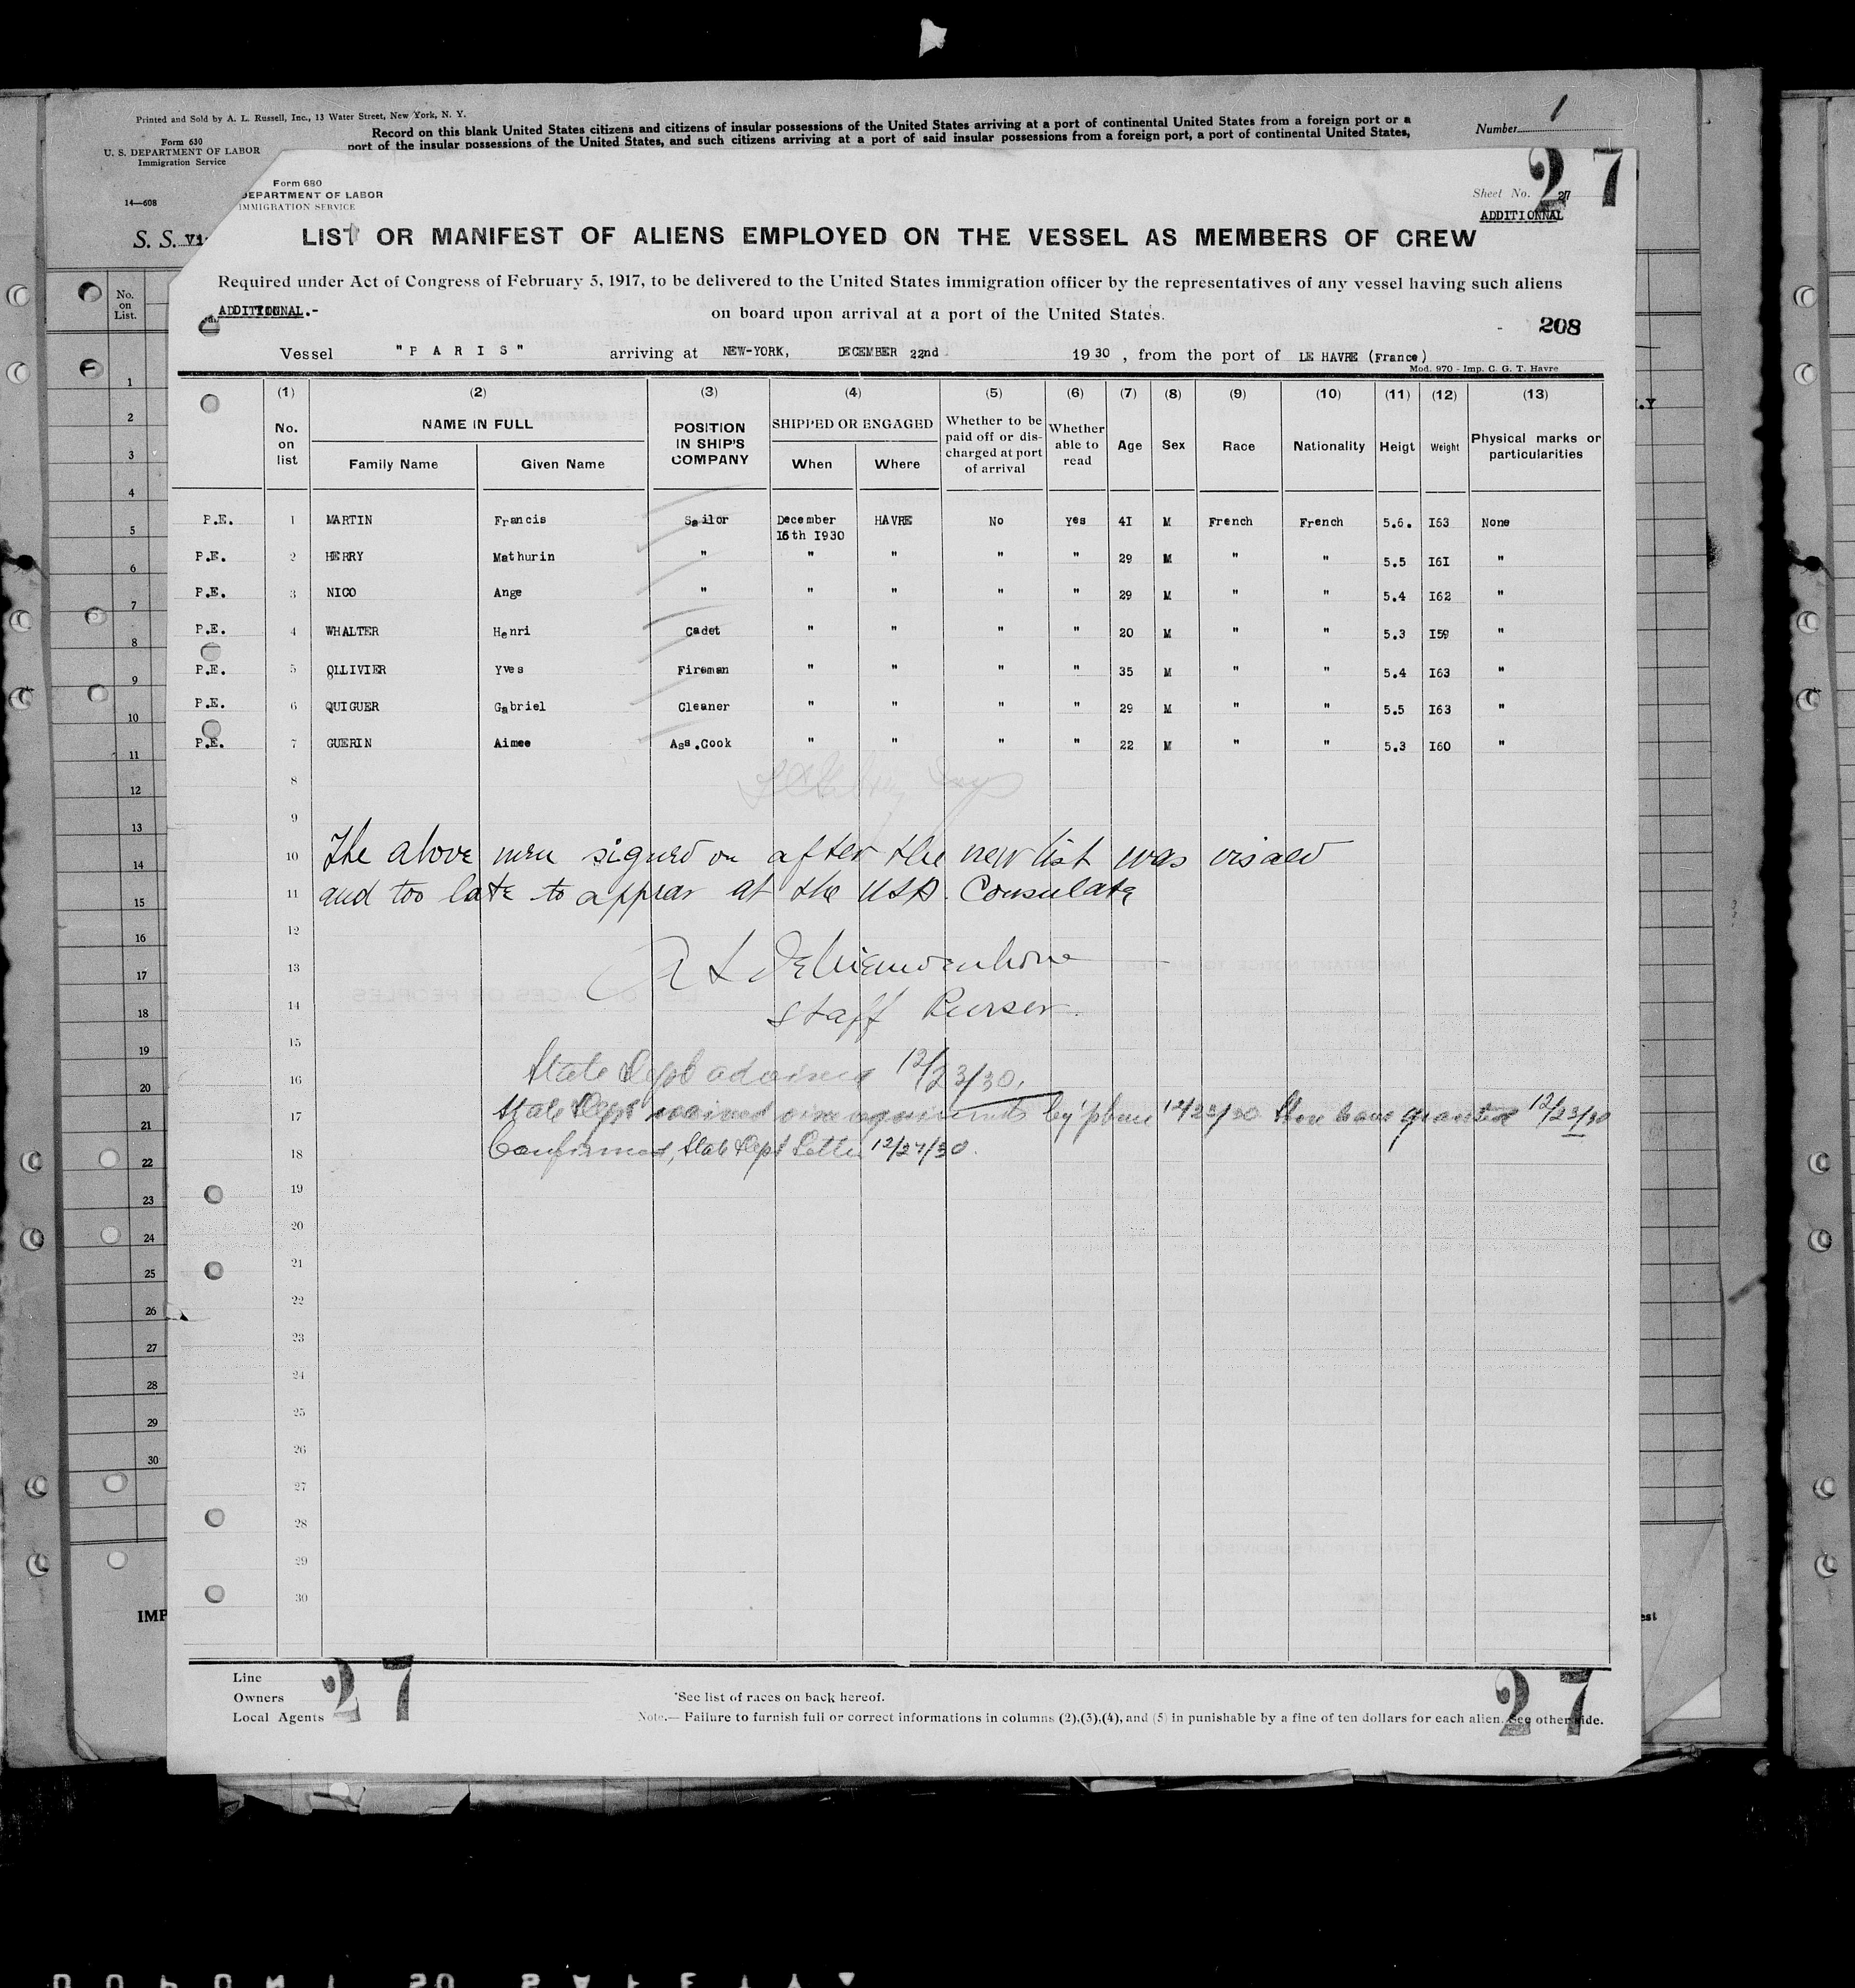 Printed and Sold by A. L. Russell, Inc., 13 Water Street, New York, N. Y.
Form 630
U. S. DEPARTMENT OF LABOR
Immigration Service
14—608
Record on this blank United States citizens and citizens of insular possessions of the United States arriving at a port of continental United States from a foreign port or a
port of the insular possessions of the United States, and such citizens arriving at a port of said insular possessions from a foreign port, a port of continental United States,
Number 1
S. S.
No. on List.
Form 680
DEPARTMENT OF LABOR
IMMIGRATION SERVICE
Sheet No. 27
27
ADDITIONNAL
LIST OR MANIFEST OF ALIENS EMPLOYED ON THE VESSEL AS MEMBERS OF CREW
Required under Act of Congress of February 5, 1917, to be delivered to the United States immigration officer by the representatives of any vessel having such aliens
ADDITIONNAL.-
on board upon arrival at a port of the United States.
208
Vessel "P A R I S" arriving at NEW-YORK, DECEMBER 22nd 1930, from the port of LE HAVRE (France)
Mod. 970 - Imp. C. G. T. Havre
(1) (2) (3) (4) (5) (6) (7) (8) (9) (10) (11) (12) (13)
No. on list NAME IN FULL Family Name Given Name POSITION IN SHIP'S COMPANY SHIPPED OR ENGAGED When Where Whether to be paid off or dis-charged at port of arrival Whether able to read Age Sex Race Nationality Heigt Weight Physical marks or particularities
P.E. 1 MARTIN Francis Sailor December 16th I930 HAVRE No Yes 4I M French French 5.6. I63 None
P.E. 2 HERRY Mathurin " " " " " 29 M " " 5.5 I6I "
P.E. 3 NICO Ange " " " " " 29 M " " 5.4 I62 "
P.E. 4 WHALTER Henri Cadet " " " " 20 M " " 5.3 I59 "
P.E. 5 OLLIVIER Yves Fireman " " " " 35 M " " 5.4 I63 "
P.E. 6 QUIGUER Gabriel Cleaner " " " " 29 M " " 5.5 I63 "
P.E. 7 GUERIN Aimee Ass.Cook " " " " 22 M " " 5.3 I60 "
8
9
10 The above men signed on after the new list was visaed
11 and too late to appear at the USA. Consulate
12
13
14 Staff Purser.
15
16 State Dept advised 12/23/30.
17 State Dept waived visa requirements by 'phone 12/23/30 Shore leave granted 12/23/30
18 Confirmed, State Dept Letter 12/27/30.
19
20
21
22
23
24
25
26
27
28
29
30
IMP
Line
Owners
Local Agents
27
*See list of races on back hereof.
Note.— Failure to furnish full or correct informations in columns (2),(3),(4), and (5) in punishable by a fine of ten dollars for each alien. See other side.
27